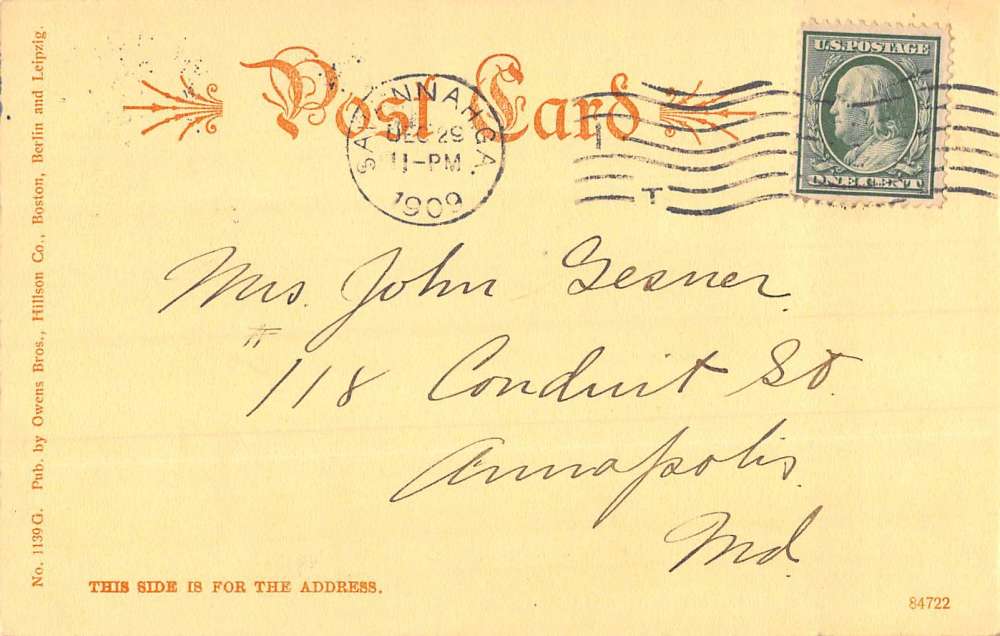 Post Card
U.S. POSTAGE
ONE CENT
SAVANNAH, GA.
DEC 29
11-PM
1909
T
Mrs. John Gesner.
# 118 Conduit St
Annapolis
Md.
No. 1139 G. Pub. by Owens Bros., Hillson Co., Boston, Berlin and Leipzig.
THIS SIDE IS FOR THE ADDRESS.
84722